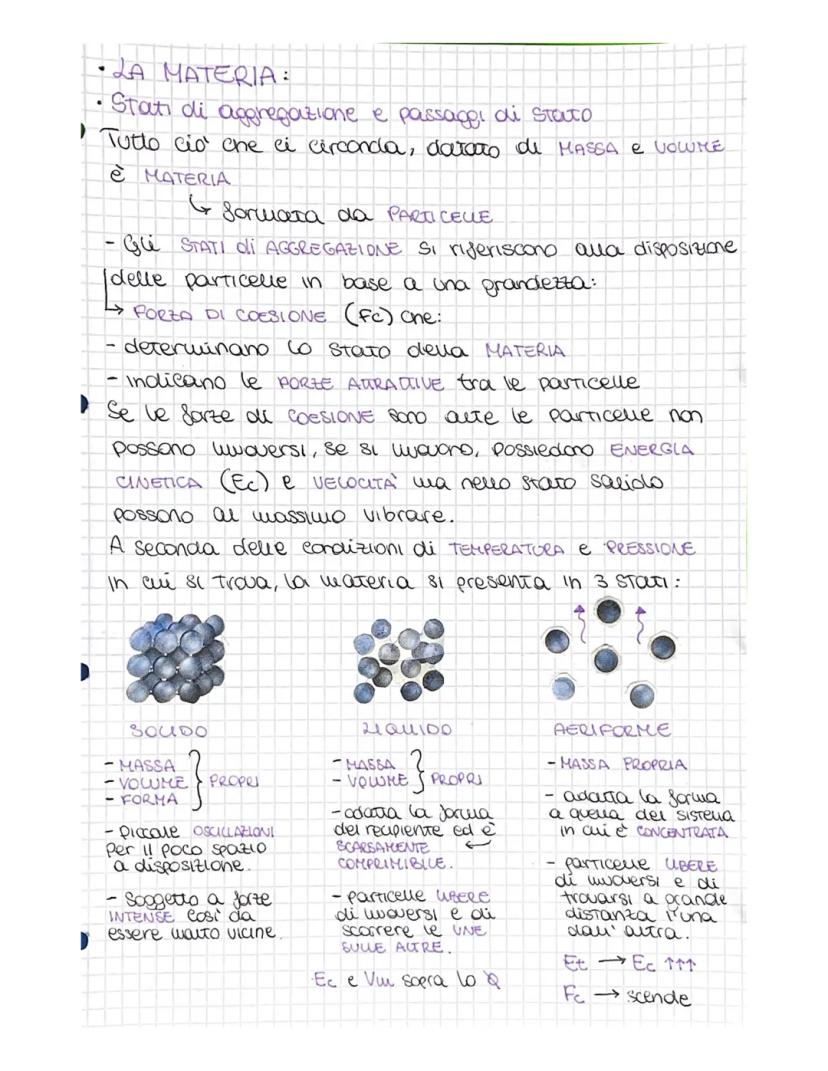 • LA MATERIA:
• Stati di aggregazione e passaggi di stato
Tutto ciò che ci circonda, dotato di MASSA e VOLUME
è MATERIA
↳ formata da PARTICELLE
- Gli STATI di AGGREGAZIONE si riferiscono alla disposizione
delle particelle in base a una grandezza:
↳ FORZA DI COESIONE (Fc) che:
- determinano lo stato della MATERIA
- indicano le FORZE ATTRATTIVE tra le particelle
Se le forze di COESIONE sono alte le particelle non
possono muoversi, se si muovono, possiedono ENERGIA
CINETICA (Ec) e VELOCITÀ ma nello stato solido
possono al massimo vibrare.
A seconda delle condizioni di TEMPERATURA e PRESSIONE
in cui si trova, la materia si presenta in 3 stati:
SOLIDO
- MASSA
- VOLUME } PROPRI
- FORMA
- piccole OSCILLAZIONI
per il poco spazio
a disposizione.
- Soggetto a forze
INTENSE così da
essere molto vicine.
LIQUIDO
- MASSA
- VOLUME } PROPRI
- adatta la forma
del recipiente ed è
SCARSAMENTE ←
COMPRIMIBILE.
- particelle LIBERE
di muoversi e di
scorrere le UNE
SULLE ALTRE.
Ec e Vm sopra lo
AERIFORME
- MASSA PROPRIA
- adatta la forma
a quella del sistema
in cui è CONCENTRATA
- particelle LIBERE
di muoversi e di
trovarsi a grande
distanza l'una
dall'altra.
Et → Ec ↑↑↑
Fc → scende